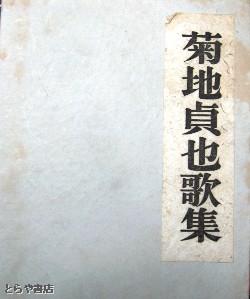 菊地貞也歌集
とらや書店